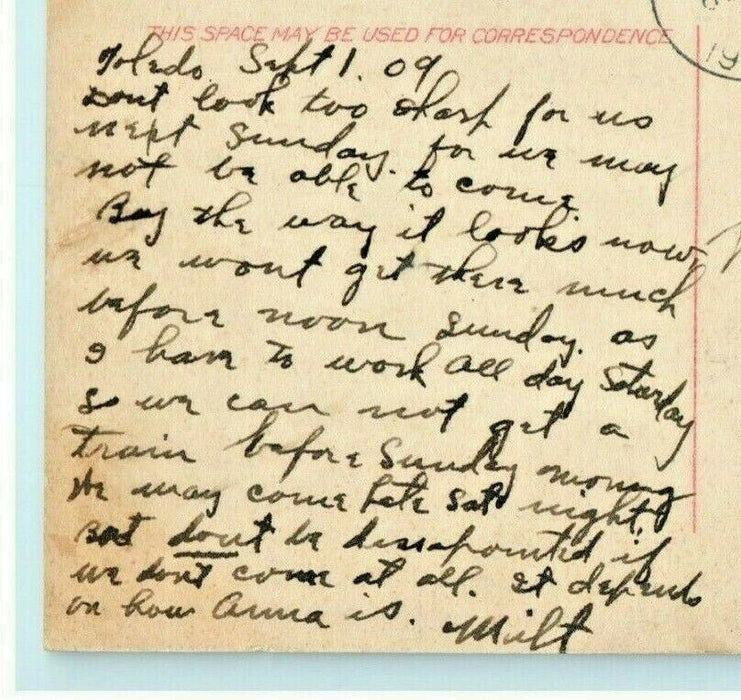 THIS SPACE MAY BE USED FOR CORRESPONDENCE
Toledo Sept 1. 09
Dont look too sharp for us
next Sunday. for we may
not be able to come.
Buy the way it looks now,
we wont get there much
before noon Sunday. as
I have to work all day Saturday
so we can not get a
train before Sunday morning
We may come late Sat night.
But dont be dissapointed if
we dont come at all. It depends
on how Anna is. Milt
19